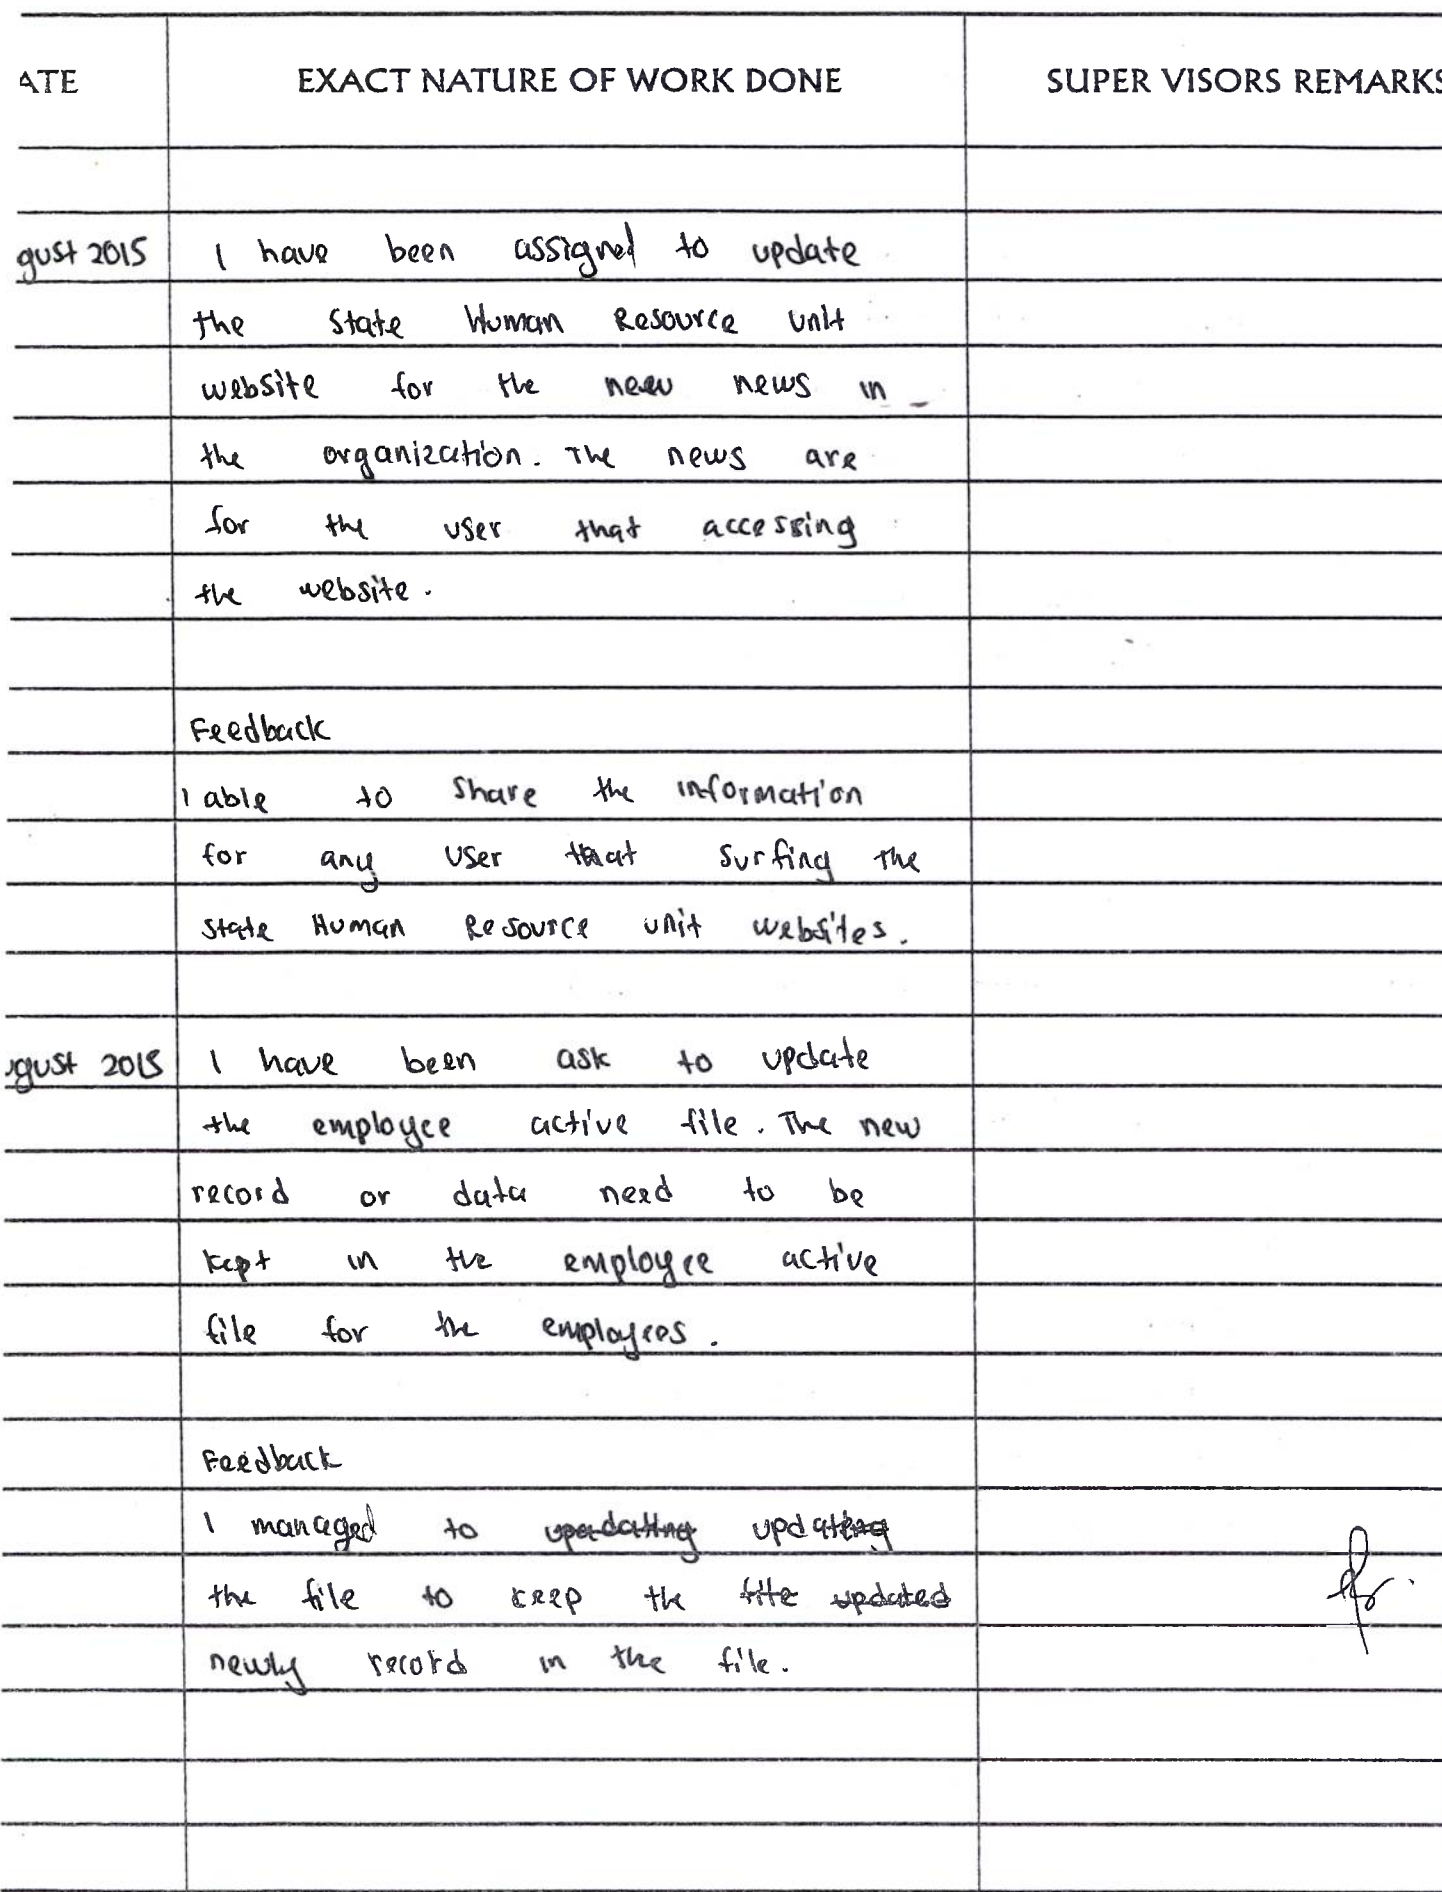 ATE EXACT NATURE OF WORK DONE SUPER VISORS REMARKS
gust 2015 I have been assigned to update
the State Human Resource Unit
website for the new news in
the organization. The news are
for the user that accessing
the website.
Feedback
I able to share the information
for any user that surfing the
state Human Resource unit websites.
ugust 2015 I have been ask to update
the employee active file. The new
record or data need to be
kept in the employee active
file for the employees.
Feedback
I managed to updating updating
the file to keep the file updated
newly record in the file.